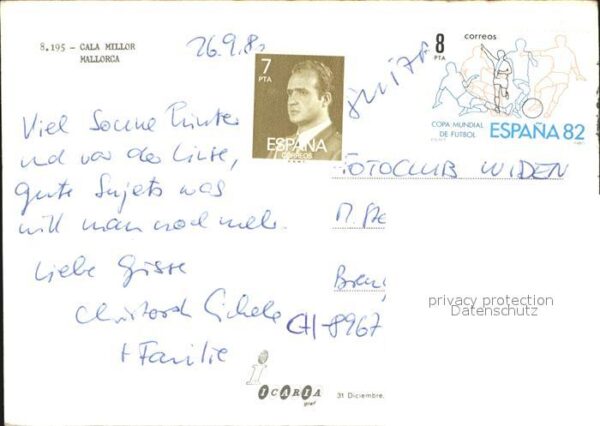 8.195 - CALA MILLOR
MALLORCA
26.9.8
7
PTA
ESPAÑA
CORREOS
8
PTA
correos
COPA MUNDIAL
DE FUTBOL
ESPAÑA 82
Viel Sonne hinter
und vor der Linse,
gute Sujets was
will man noch mehr.
Liebe Grüsse
Christoph
+ Familie
FOTOCLUB WIDEN
CH-8967
privacy protection
Datenschutz
i
ICARIA
graf
31 Diciembre,